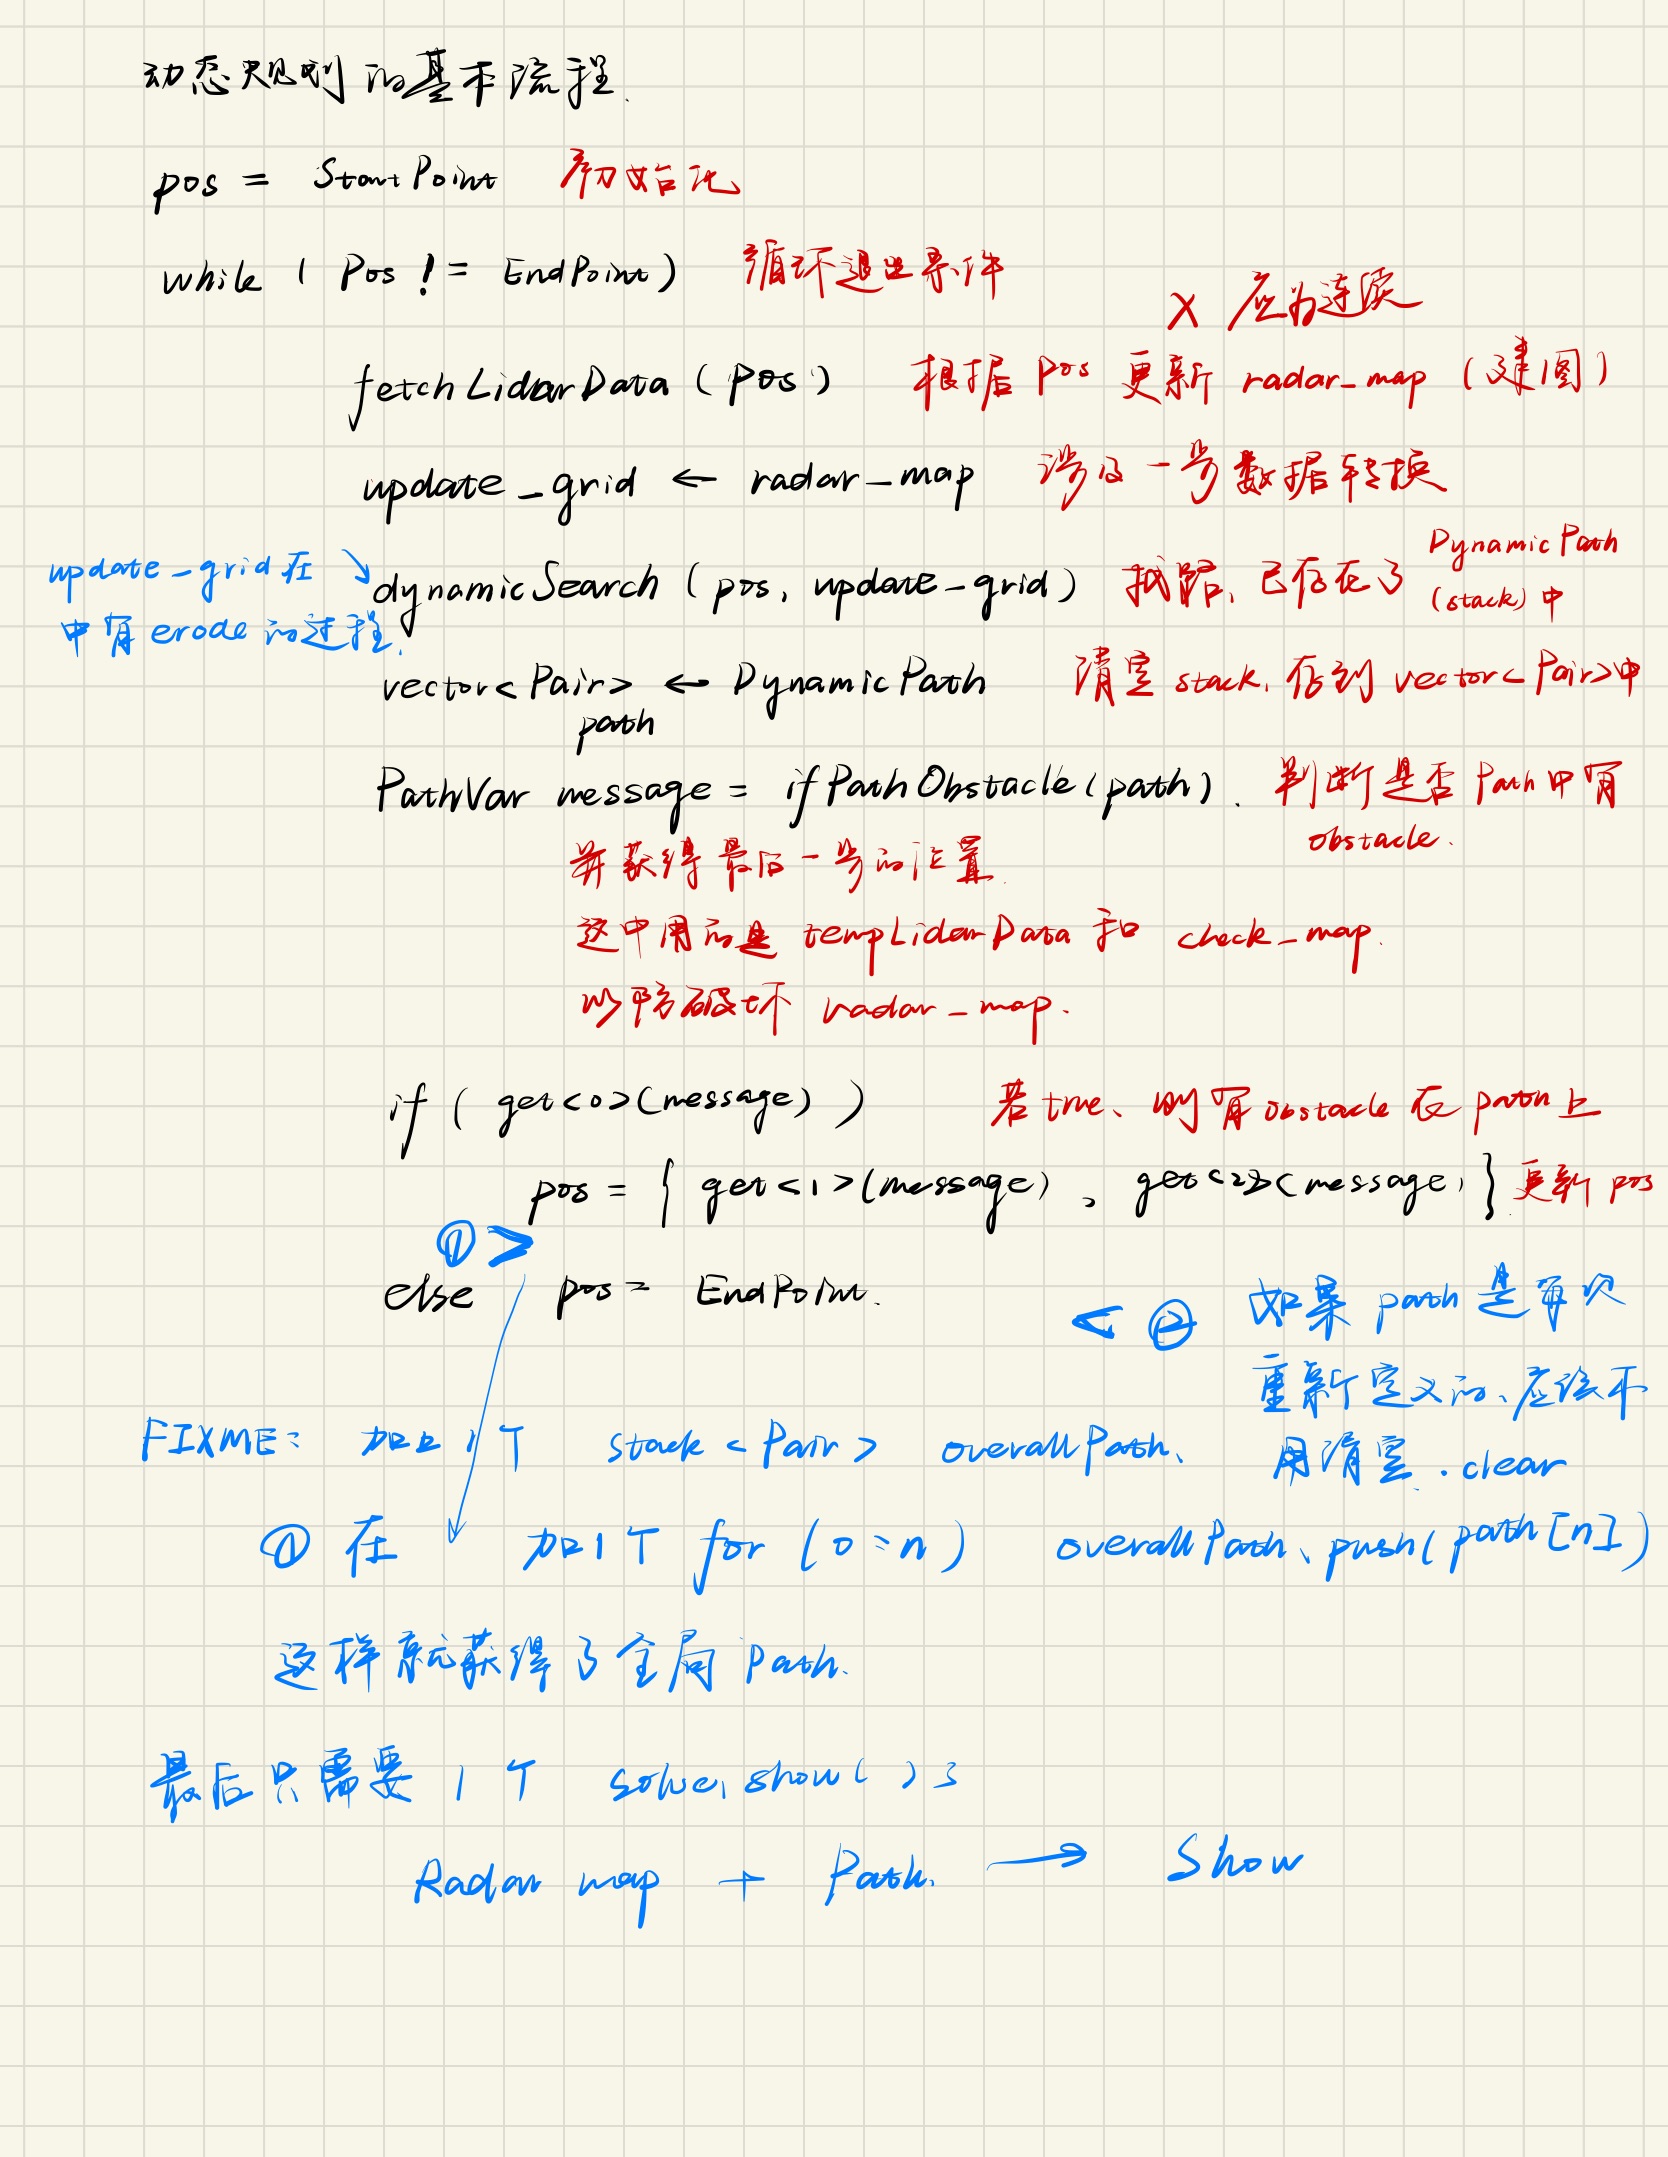 动态规划的基本流程.
pos = StartPoint 初始化
while ( Pos != EndPoint) 循环退出条件
X 应为连续
fetchLidarData (pos) 根据 pos 更新 radar_map (建图)
update_grid ← radar_map 涉及一步数据转换
update_grid 在
中有 erode 的过程.
dynamicSearch (pos, update_grid) 找路, 已存在了 DynamicPath
(stack) 中
vector<Pair> ← DynamicPath 清空 stack, 存到 vector<Pair>中
path
PathVar message = ifPathObstacle(path). 判断是否 Path 中有
obstacle.
并获得最后一步的位置.
这中用的是 tempLidarData 和 check_map.
以防破坏 radar_map.
if ( get<0>(message) ) 若 true, 则有 obstacle 在 path 上
pos = { get<1>(message) , get<2>(message) } 更新 pos
① >
else pos = EndPoint.
< ② 如果 path 是再次
重新定义的, 应该不
用清空 .clear
FIXME: 加上 1个 stack<Pair> overallPath,
① 在 加1个 for (0:n) overallPath.push(path[n])
这样就获得了全局 Path.
最后只需要 1个 solve.show( )了
Radar map + Path. → Show